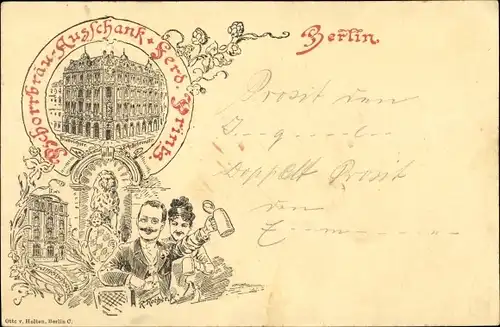 Pschorrbräu-Ausschank + Ferd. Printz.
Berlin.
Prosit von
J--g---l--
Doppelt Prosit
von
E---m-------
R. Röhler
Otto v. Holten, Berlin C.